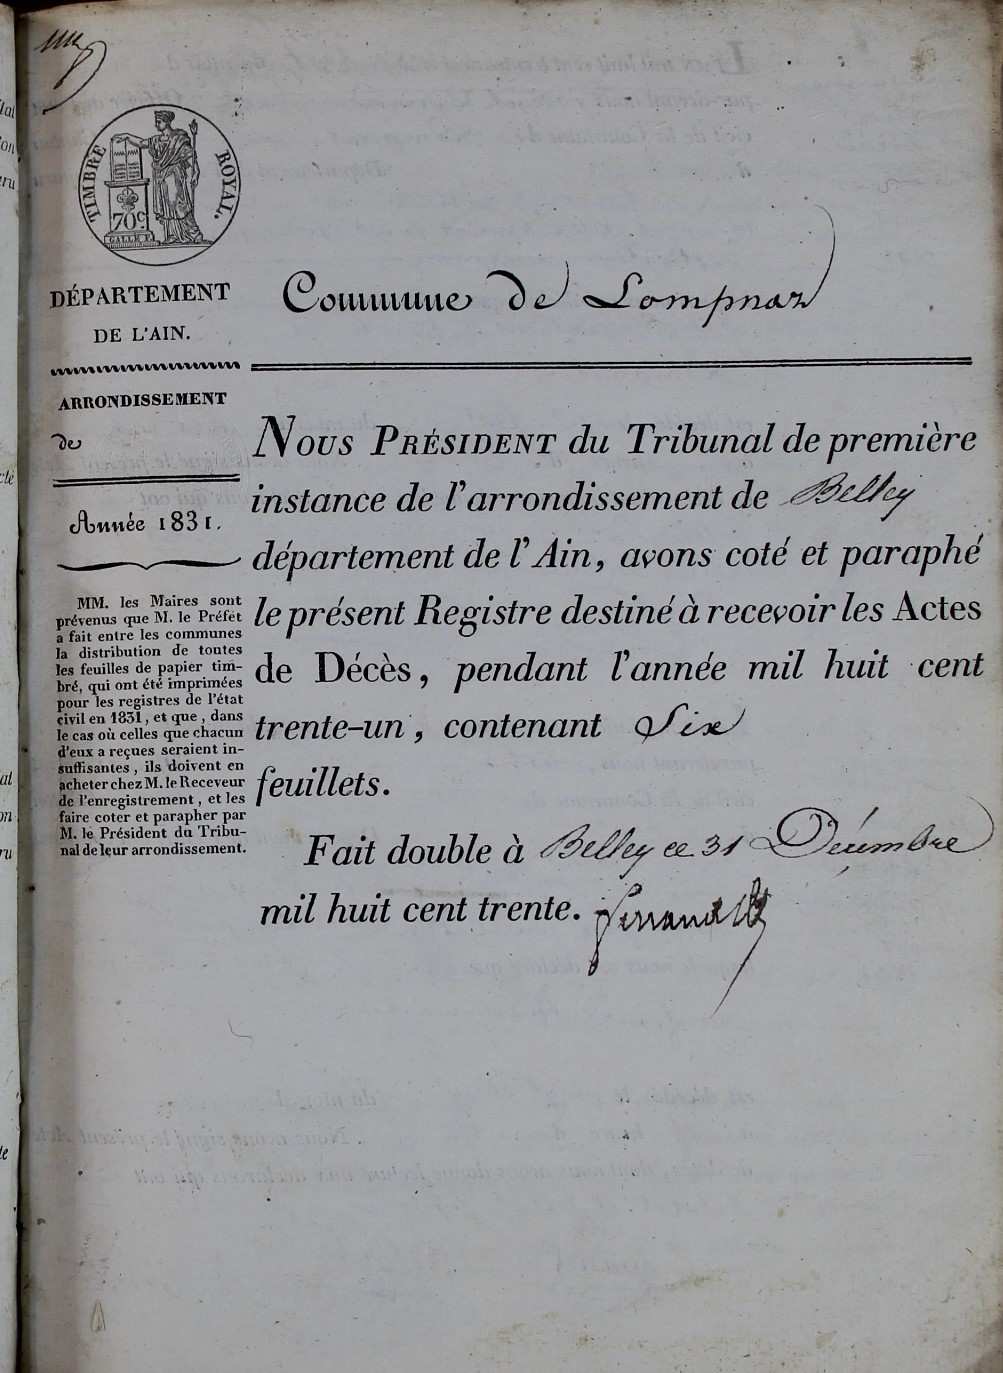 TIMBRE ROYAL.
70c.
GALLE F.
DÉPARTEMENT
DE L'AIN.
Commune de Lompnaz
ARRONDISSEMENT
de
Année 1831.
MM. les Maires sont
prévenus que M. le Préfet
a fait entre les communes
la distribution de toutes
les feuilles de papier tim-
bré, qui ont été imprimées
pour les registres de l'état
civil en 1831, et que, dans
le cas où celles que chacun
d'eux a reçues seraient in-
suffisantes, ils doivent en
acheter chez M. le Receveur
de l'enregistrement, et les
faire coter et parapher par
M. le Président du Tribu-
nal de leur arrondissement.
NOUS PRÉSIDENT du Tribunal de première
instance de l'arrondissement de Belley
département de l'Ain, avons coté et paraphé
le présent Registre destiné à recevoir les Actes
de Décès, pendant l'année mil huit cent
trente-un, contenant Six
feuillets.
Fait double à Belley ce 31 Décembre
mil huit cent trente.